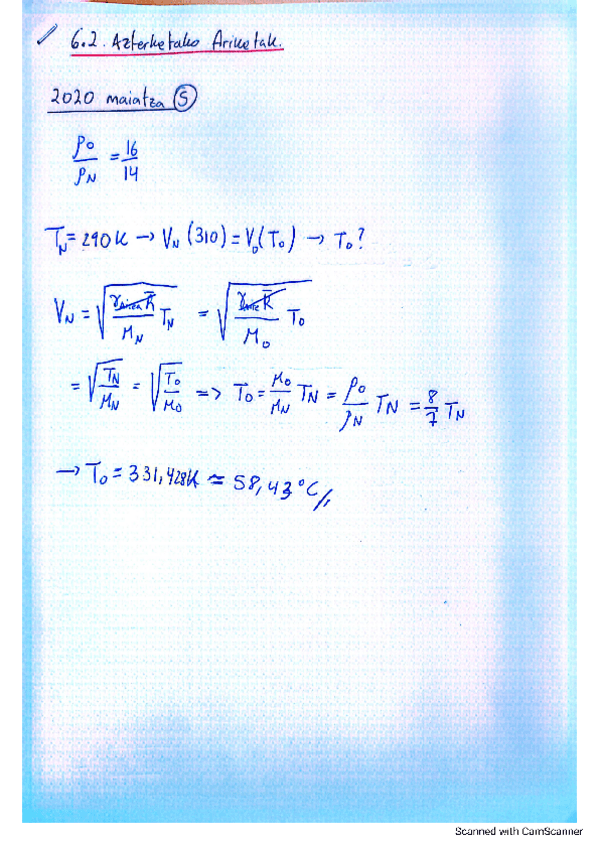 6.2. Azterketako Ariketak.
2020 maiatza ⑤
ρo/ρN = 16/14
TN = 290K → VN (310) = Vo(To) → To?
VN = √(γairea R̄/MN TN) = √(γaire R̄/Mo To)
= √(TN/MN) = √(To/Mo) => To = Mo/MN TN = ρo/ρN TN = 8/7 TN
→ To = 331,428K ≈ 58,43°C//
Scanned with CamScanner